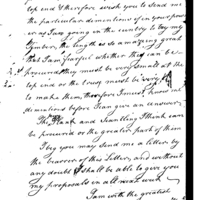 top end & therefore wish you to send me
the particular dementions if in your power
as I am going in the country to buy my
Timber, the length is so amazing great
that I am fearful whether they can be
procured they must be very small at the
top end or the trees must be very
to make them therefore I must know the
demantions before I can give an answer.
The Plank and Scantling I think can
be procured or the greater part of them
I beg you may send me a letter by
the bearer of this Letter, and without
any doubt I shall be able to give you
my proposals in a
I am with the greatest